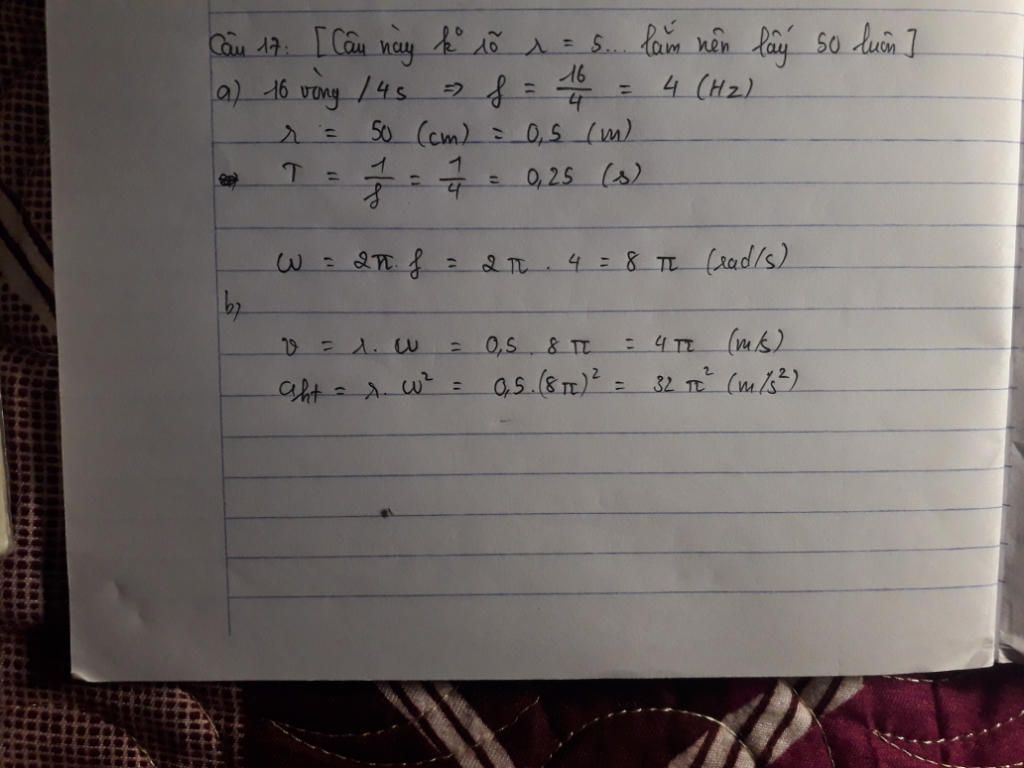 Câu 17: [Câu này k° rõ r = 5... lắm nên lấy 50 luôn]
a) 16 vòng / 4s => f = 16/4 = 4 (Hz)
r = 50 (cm) = 0,5 (m)
T = 1/f = 1/4 = 0,25 (s)
ω = 2π. f = 2π . 4 = 8 π (rad/s)
b)
v = r. ω = 0,5 . 8π = 4π (m/s)
aht = r. ω² = 0,5.(8π)² = 32 π² (m/s²)